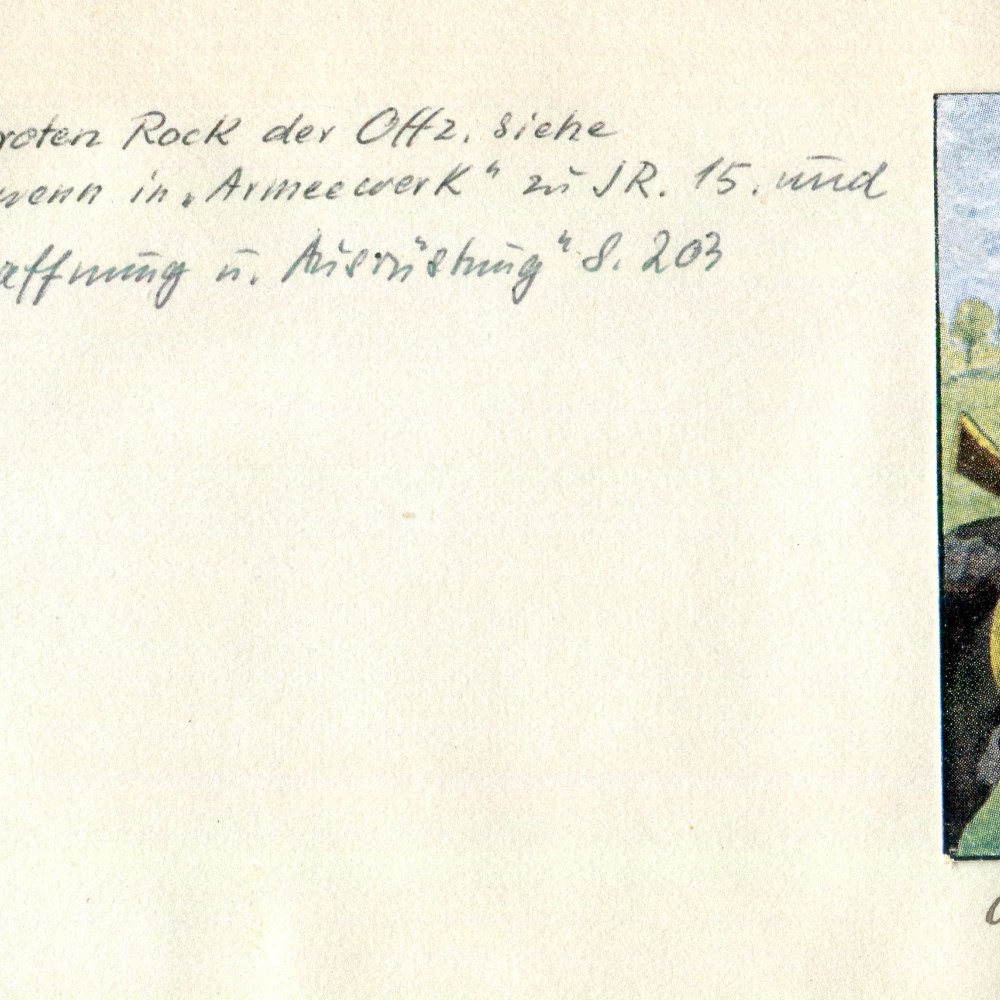 roten Rock der Offz. siehe
wenn in „Armeewerk" zu JR. 15. und
affnung u. Ausrüstung" S. 203